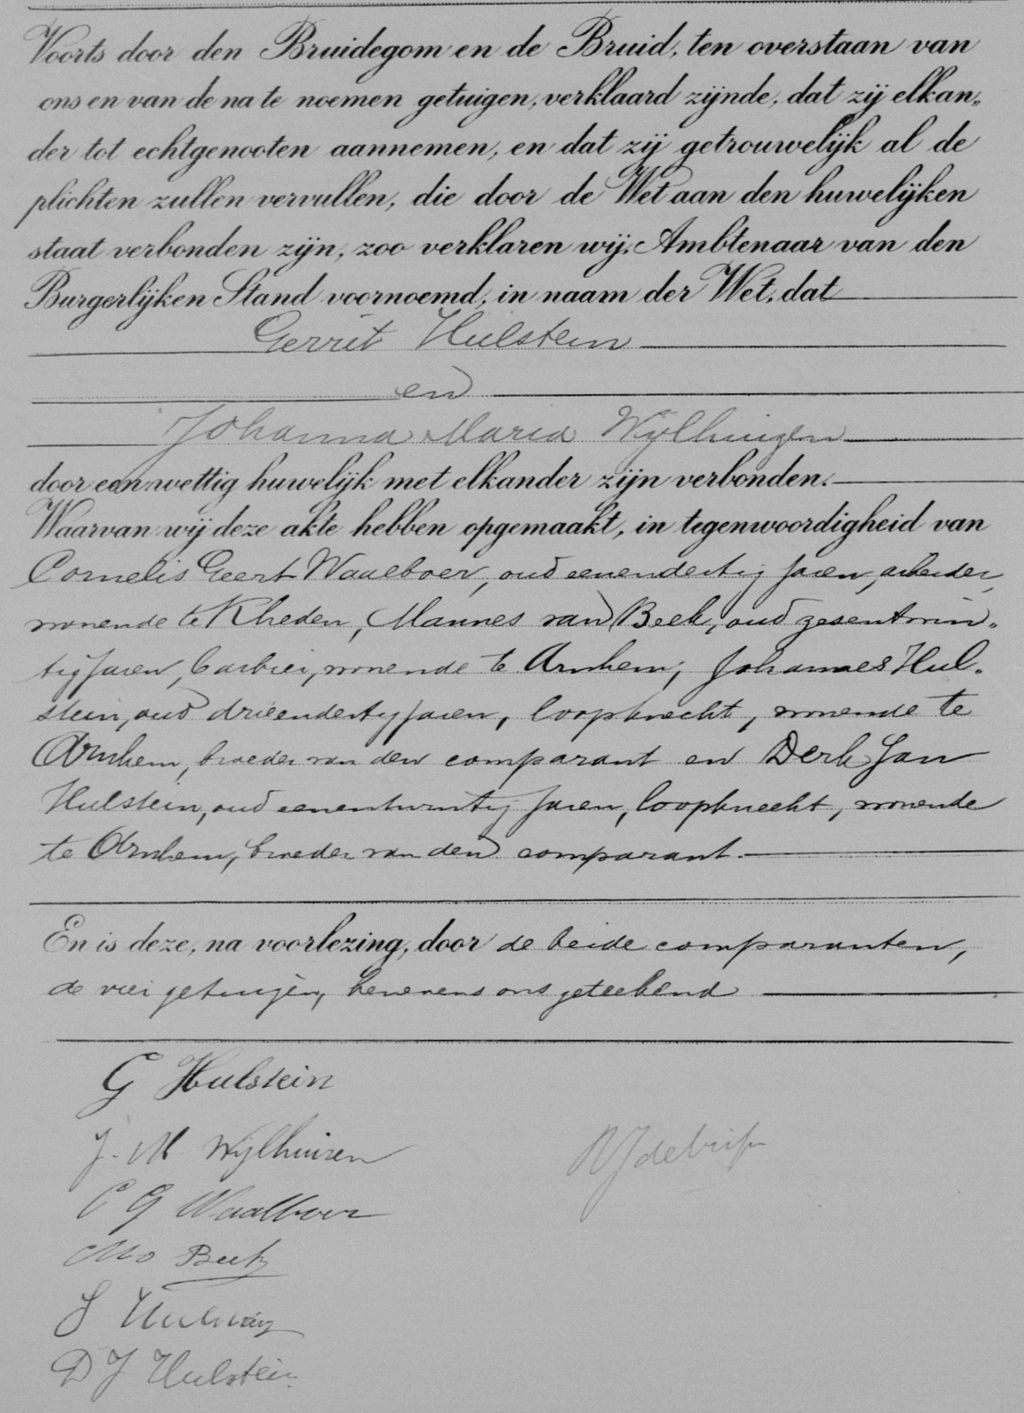 Voorts door den Bruidegom en de Bruid, ten overstaan van
ons en van de na te noemen getuigen, verklaard zijnde, dat zij elkan„
der tot echtgenooten aannemen, en dat zij getrouwelijk al de
plichten zullen vervullen, die door de Wet aan den huwelijken
staat verbonden zijn, zoo verklaren wij, Ambtenaar van den
Burgerlijken Stand voornoemd, in naam der Wet, dat
Gerrit Hulstein
en
Johanna Maria Wijlhuizen
door een wettig huwelijk met elkander zijn verbonden.
Waarvan wij deze akte hebben opgemaakt, in tegenwoordigheid van
Cornelis Geert Waalboer, oud eenendertig jaren, arbeider,
wonende te Rheden, Mannes van Beek, oud zesentwin„
tig jaren, barbier, wonende te Arnhem, Johannes Hul„
stein, oud drieendertig jaren, loopknecht, wonende te
Arnhem, broeder van den comparant en Derk Jan
Hulstein, oud eenentwintig jaren, loopknecht, wonende
te Arnhem, broeder van den comparant.
En is deze, na voorlezing, door de beide comparanten,
de vier getuigen, benevens ons geteekend
G Hulstein
J. M Wijlhuizen
C G Waalboer
M v Beek
J Hulstein
D J Hulstein